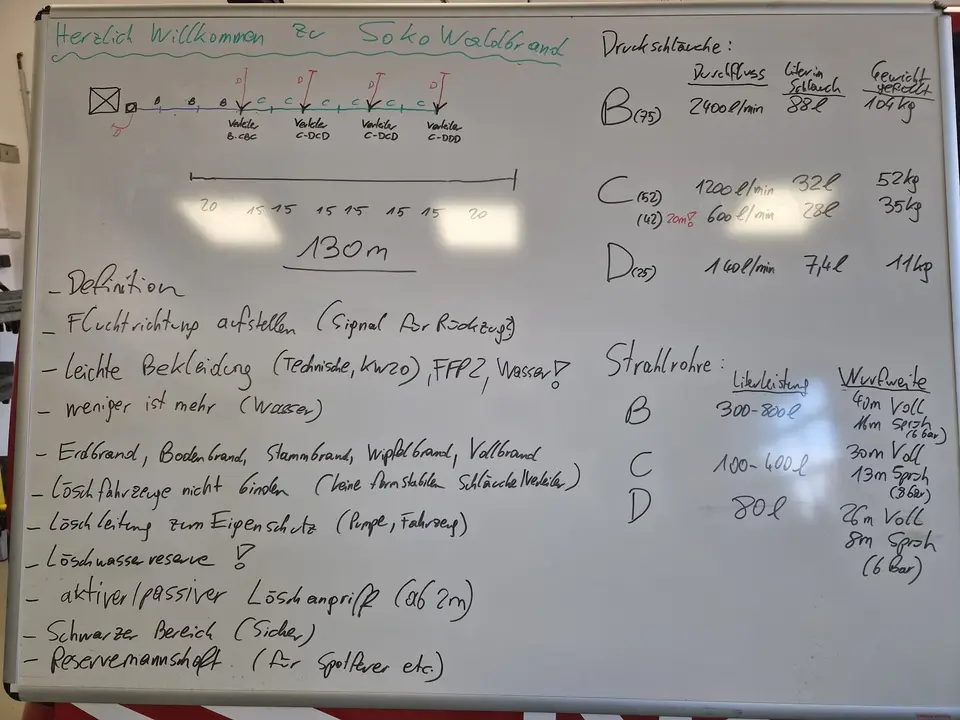 Herzlich Willkommen zu Soko Waldbrand
D D D D
B B B C C C C C C
D
Verteiler B-CBC
Verteiler C-DCD
Verteiler C-DCD
Verteiler C-DDD
20 15 15 15 15 15 15 20
130m
- Definition
- Fluchtrichtung aufstellen (Signal für Rückzug?)
- Leichte Bekleidung (Technische, KW20), FFP2, Wasser!
- weniger ist mehr (Wasser)
- Erdbrand, Bodenbrand, Stammbrand, Wipfelbrand, Vollbrand
- Löschfahrzeuge nicht binden (keine formstabilen Schläuche/Verteiler)
- Löschleitung zum Eigenschutz (Pumpe, Fahrzeug)
- Löschwasserreserve!
- aktiver/passiver Löschangriff (ab 2m)
- Schwarzer Bereich (Sicher)
- Reservemannschaft (für Spotfeuer etc.)
Druckschläuche:
Durchfluss Liter in Schlauch Gewicht gefüllt
B(75) 2400 l/min 88l 104kg
C(52) 1200 l/min 32l 52kg
(42) 20m! 600 l/min 28l 35kg
D(25) 140 l/min 7,4l 11kg
Strahlrohre:
Literleistung Wurfweite
B 300-800l 40m Voll
16m Sprüh
(6 bar)
C 100-400l 30m Voll
13m Sprüh
(8 bar)
D 80l 26m Voll
8m Sprüh
(6 Bar)